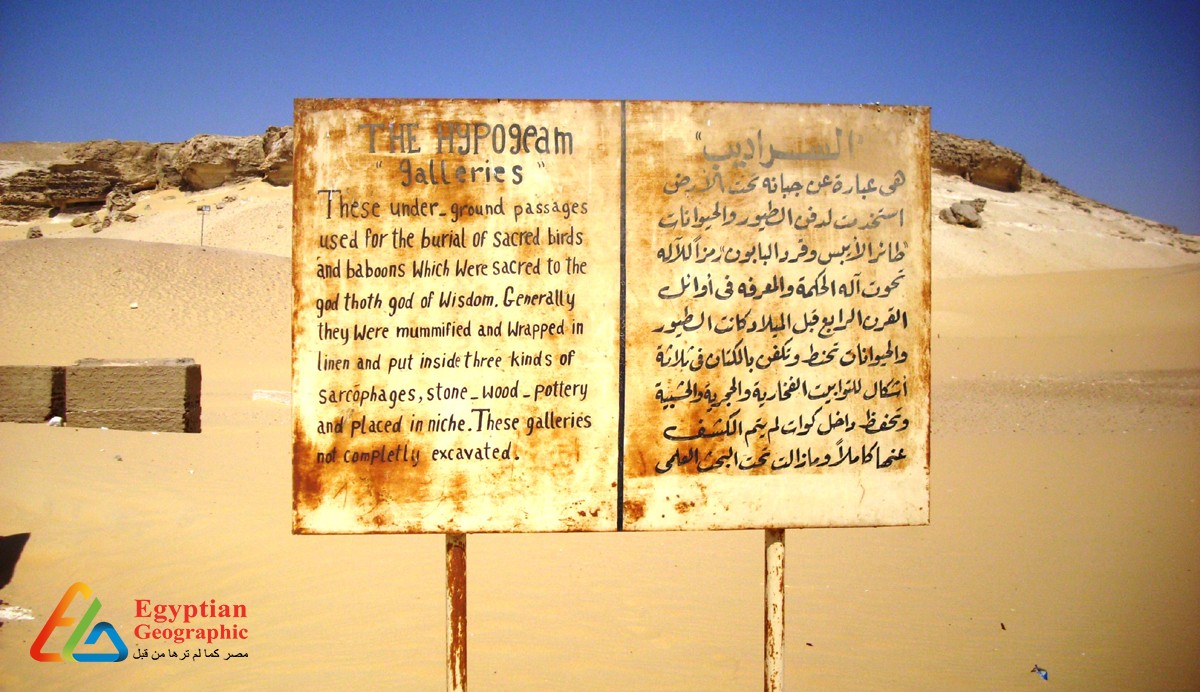 THE HYPOgeam
"galleries"
These under-ground passages
used for the burial of sacred birds
and baboons Which Were sacred to the
god thoth god of Wisdom. Generally
they Were mummified and Wrapped in
linen and put inside three kinds of
sarcophages, stone_wood_pottery
and placed in niche. These galleries
not completly excavated.
"السراديب"
هى عبارة عن جبانه تحت الأرض
استخدمت لدفن الطيور والحيوانات
"طائر الأيبس وقرد البابون" رمزاً للآله
تحوت آله الحكمة والمعرفه فى أوائل
القرن الرابع قبل الميلاد كانت الطيور
والحيوانات تحنط وتكفن بالكتان فى ثلاثة
أشكال للتوابيت الفخارية والحجرية والخشبية
وتحفظ داخل كوات لم يتم الكشف
عنها كاملاً ومازالت تحت البحث العلمى
Egyptian
Geographic
مصر كما لم ترها من قبل